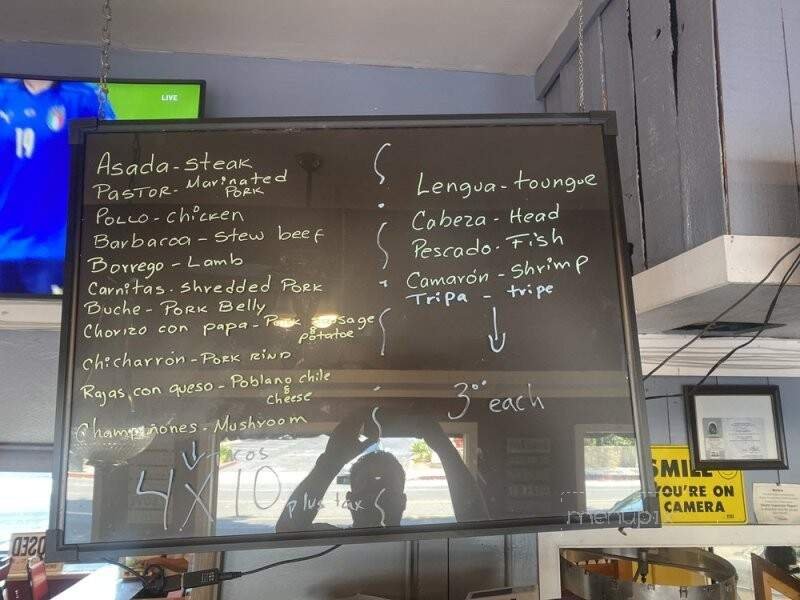 LIVE
19
Asada - Steak
PASTOR - Marinated
PORK
POLLO - Chicken
Barbacoa - Stew beef
Borrego - Lamb
Carnitas - Shredded PORK
Buche - PORK Belly
Chorizo con papa - Pork Sausage
& potatoe
Chicharrón - PORK RIND
Rajas con queso - Poblano chile
& cheese
Champiñones - Mushroom
tacos
4 x 10 plus tax
Lengua - toungue
Cabeza - Head
Pescado - Fish
Camarón - Shrimp
Tripa - tripe
3.00 each
SMILE
YOU'RE ON
CAMERA
CLOSED
menupix